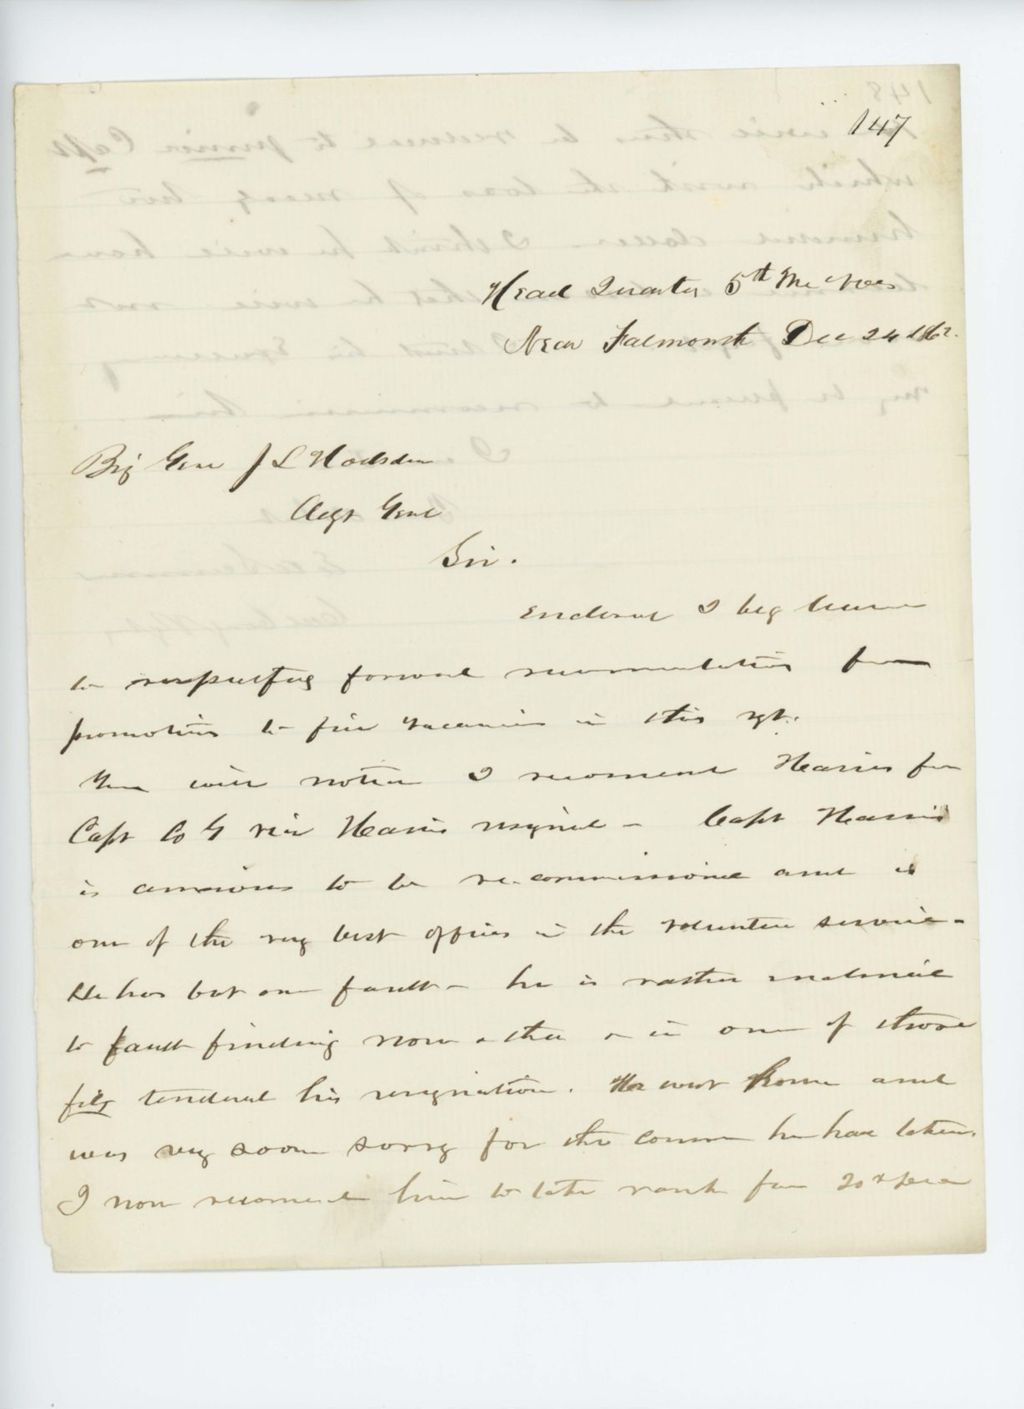 147
Head Quarters 5th Me Vols
Near Falmouth Dec 24 1862.
Brig Genl J L Hodsdon
Adgt Genl
Sir.
Enclosed I beg leave
to respectfuly forward recommendations for
promotions to fill vacancies in this rgt.
You will notice I recomend Harris for
Capt Co G vice Harris resigned - Capt Harris
is anxious to be re-commissioned and is
one of the very best officers in the volunteer service -
He has but one fault - he is rather inclined
to fault finding now & then & in one of those
fits tendered his resignation. He went home and
was very soon sorry for the course he had taken.
I now recomend him to take rank from 20th